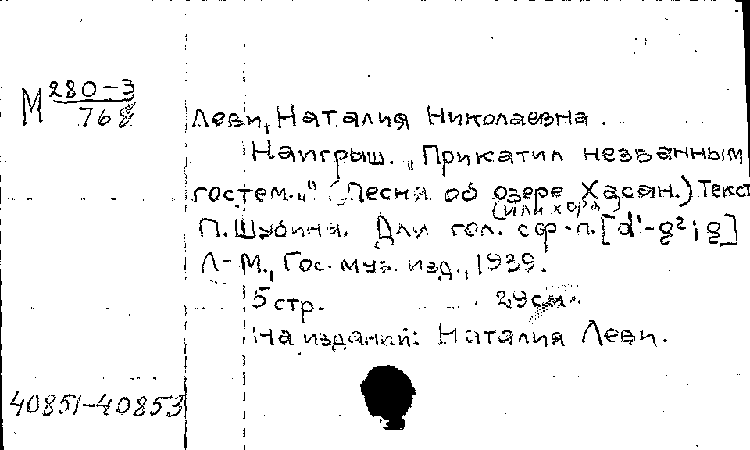 М 280-3
768
Леви, Наталия Николаевна.
Наигрыш. „Прикатил незванным
гостем..." (Песня об озере Хасан.) Текст
(или хора)
П. Шубина. Для гол. с ф-п. [d'-g²; g]
Л-М., Гос. муз. изд., 1939.
5 стр. 29 см.
На издании: Наталия Леви.
40851-40853